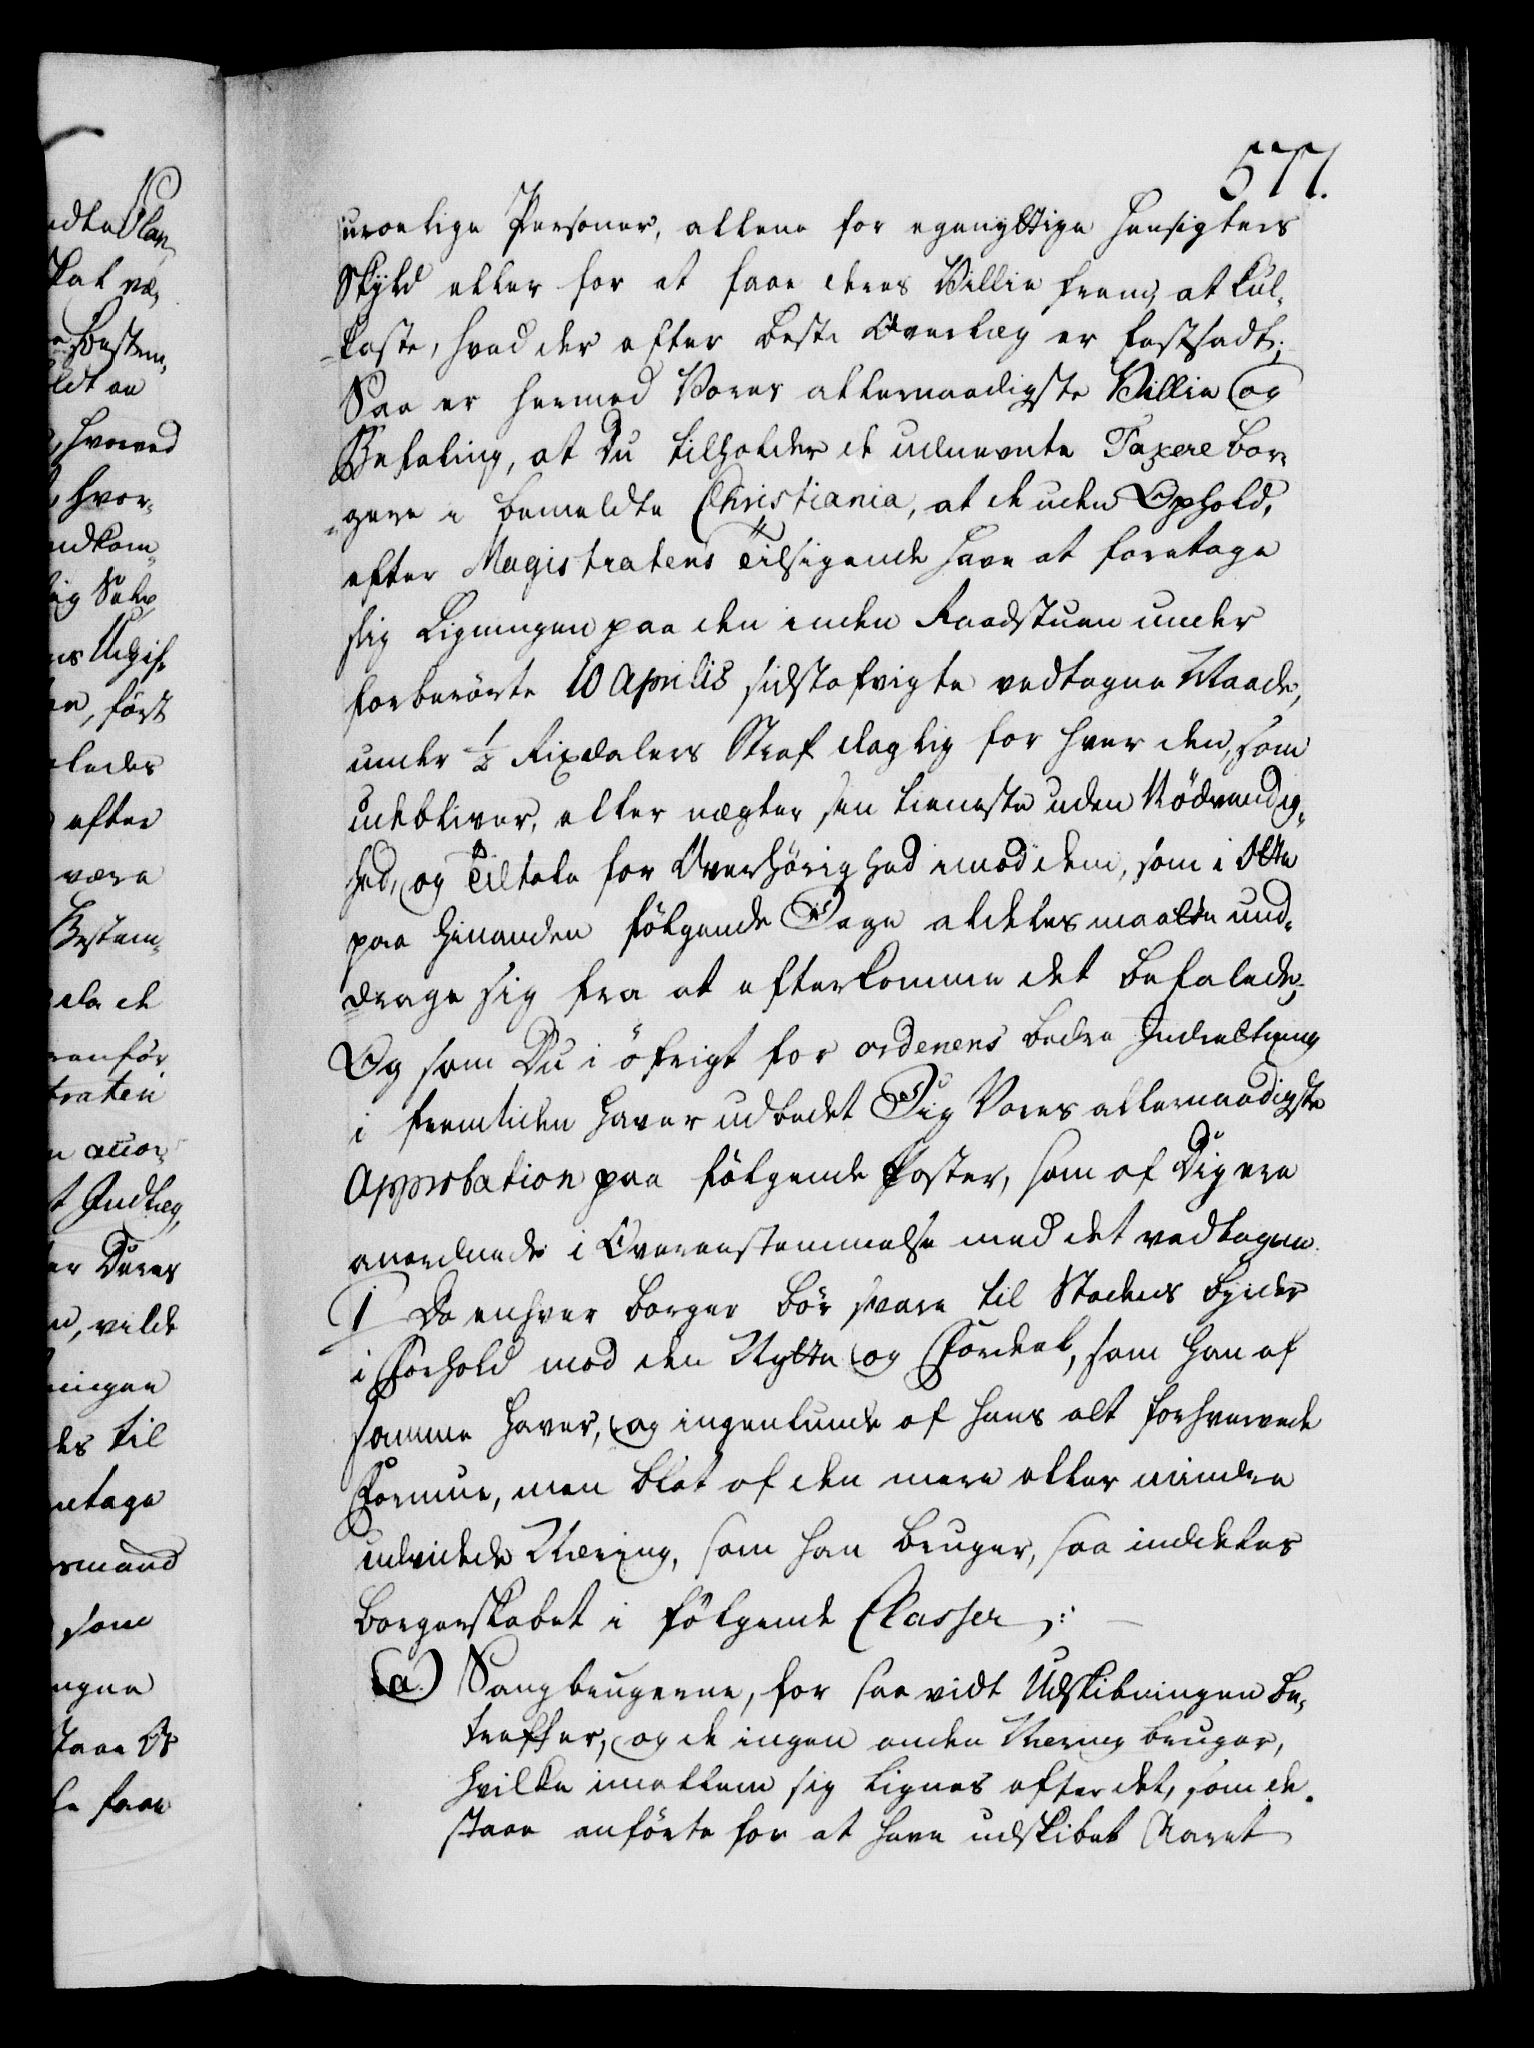 577.
uroelige Personer, allene for egennyttige Hensigters
Skyld eller for at faae deres Villie frem, at kul-
kaste, hvad der efter beste Overlæg er fastsadt;
Saa er hermed Vores allernaadigste Villie og
Befaling, at Du tilholder de udnevnte Taxereborgere
gere i bemeldte Christiania, at de uden Ophold,
efter Magistratens Tilsigende have at foretage
sig Ligningen paa den inden Raadstuen under
forberörte 10 Aprilis sidstafvigte vedtagne Maade,
under 1/2 Rixdalers Straf daglig for hver den, som
udebliver, eller nægter sin tieneste uden Nödvendig-
hed, og Tiltale for Overhörighed imod dem, som i Otte
paa hinanden fölgende Dage aldeles maatte und-
drage sig fra at efterkomme det befalede;
Og som Du i öfrigt for ordenens bedre Indretning
i fremtiden haver udbedet Dig Vores allernaadigste
Approbation paa fölgende Poster, som af Dig ere
anordnede i Overeenstemmelse med det vedtagne.
1 Da enhver borger bör svare til Stadens byrder
i Forhold mod den Nytte og Fordeel, som han af
samme haver, og ingenlunde af hans alt forhvervede
Formue, men blot af den mere eller mindre
udvidede Næring, som han bruger, saa inddeles
borgerskabet i fölgende Classer:
(a.) Saugbrugerne, for saa vidt Udskibningen be-
treffer, og de ingen anden Næring bruger,
hvilke imellem sig lignes efter det, som de
staae anförte for at have udskibet Aaret